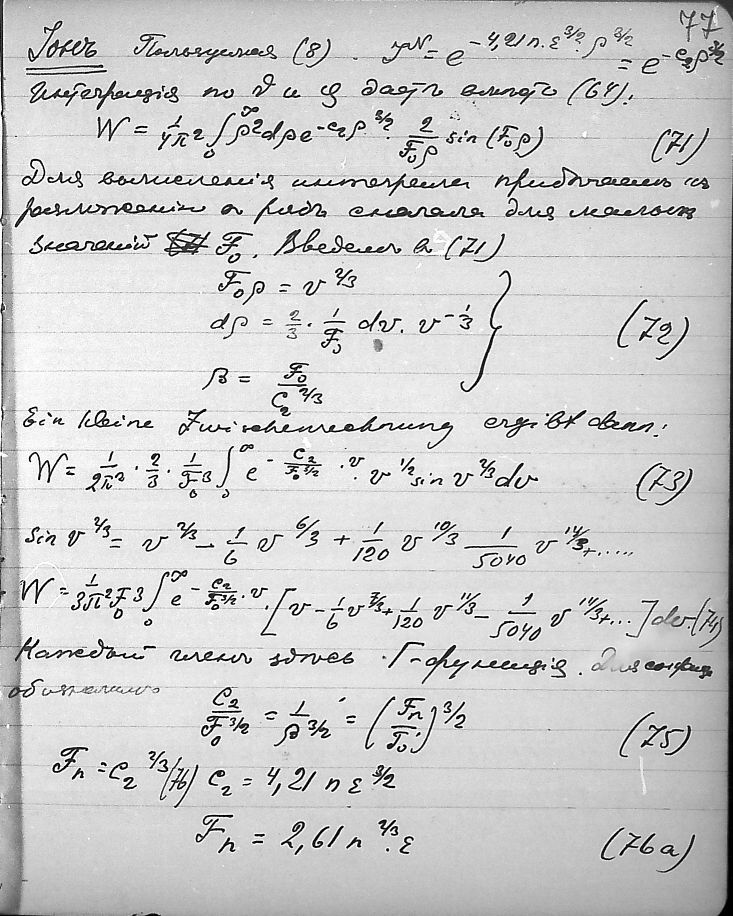 77
Іонъ Пользуемся (8). γᴺ = e^{-4,21 n. ε^{3/2} · ρ^{3/2}} = e^{-c₂ρ^{3/2}}
Интеграція по ϑ и φ даетъ вместо (64):
W = 1/4π² ∫₀^∞ ρ²dρ e^{-c₂ρ^{3/2}} · 2/F₀ρ sin (F₀ρ) (71)
Для вычисленія интеграла прибегаемъ къ
разложенію въ рядъ сначала для малыхъ
значеній F₀. Введемъ въ (71)
F₀ρ = v^{2/3}
dρ = 2/3 · 1/F₀ dv. v^{-1/3} (72)
β = F₀/C₂^{2/3}
Ein kleine Zwischenrechnung ergibt dann:
W = 1/2π² · 2/3 · 1/F₀³ ∫₀^∞ e^{-C₂/F₀^{3/2} · v} · v^{1/2} sin v^{2/3} dv (73)
sin v^{2/3} = v^{2/3} - 1/6 v^{6/3} + 1/120 v^{10/3} - 1/5040 v^{14/3} + .....
W = 1/3π²F₀³ ∫₀^∞ e^{-C₂/F₀^{3/2} · v} · [v - 1/6 v^{7/3} + 1/120 v^{11/3} - 1/5040 v^{14/3} + ...] dv (74)
Каждый членъ здесь Γ-функція. Для
обозначимъ
C₂/F₀^{3/2} = 1/β^{3/2} = (Fₙ/F₀)^{3/2} (75)
Fₙ = C₂^{2/3} (76) C₂ = 4,21 n ε^{3/2}
Fₙ = 2,61 n^{2/3} · ε (76a)